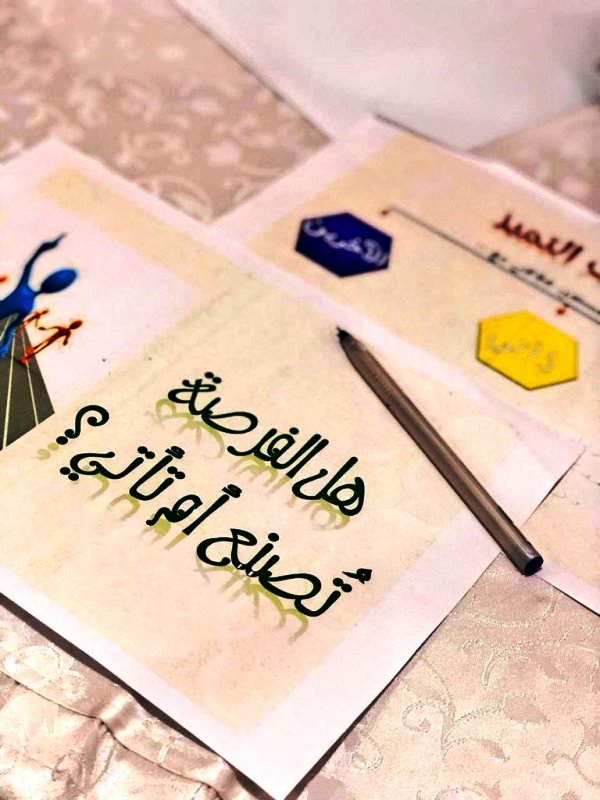 هل الفرصة
تُصنع أم تأتي ؟
التميز
الآخرين
ذاتي